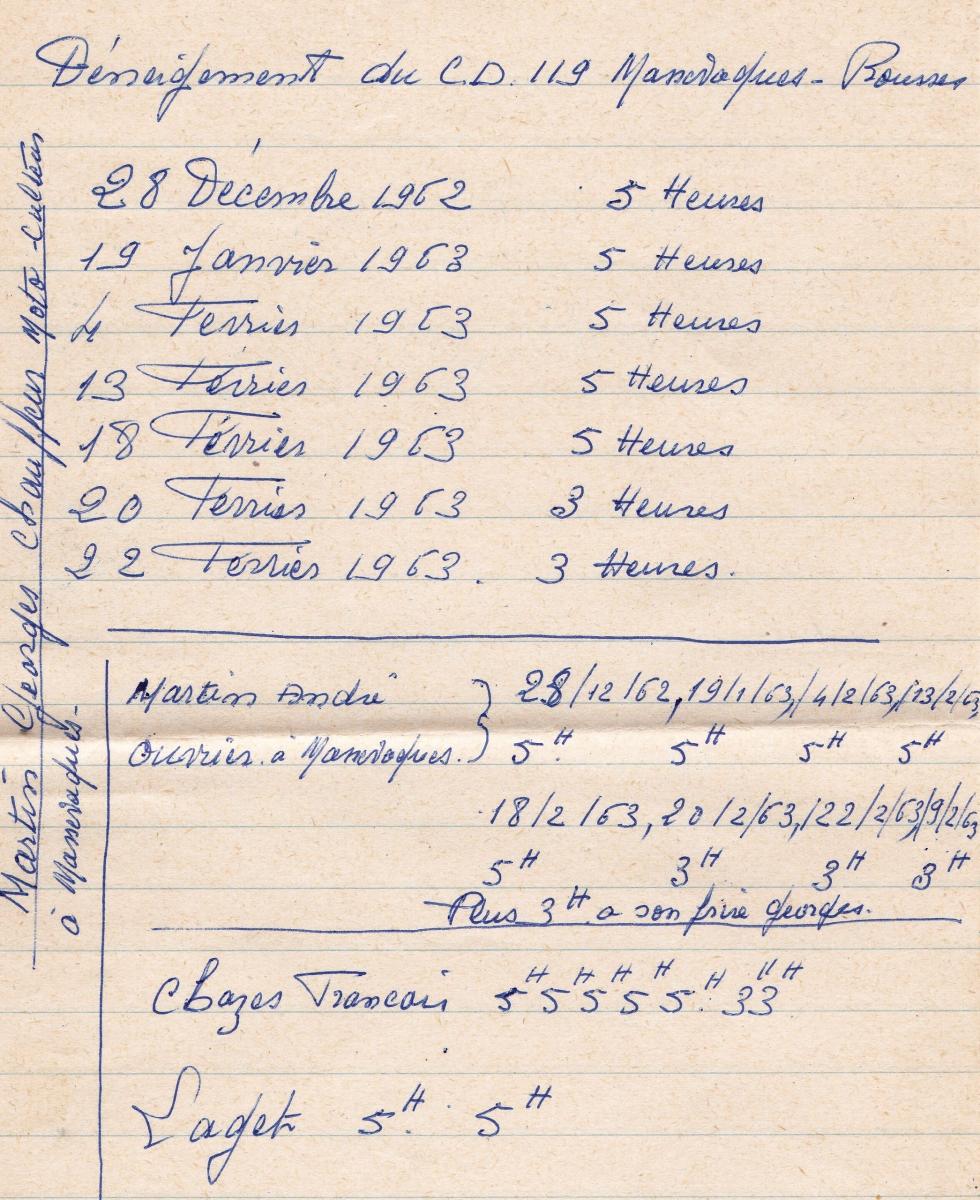 Déneigement du C.D. 119 Massevaques - Rousses
28 Décembre 1962 5 Heures
19 Janvier 1963 5 Heures
4 Fevrier 1963 5 Heures
13 Février 1963 5 Heures
18 Février 1963 5 Heures
20 Fevrier 1963 3 Heures
22 Fevrier 1963. 3 Heures.
Martin Georges Chauffeur Moto-culteur
à Massevaques-
Martin André } 28/12/62, 19/1/63,/4/2/63,/13/2/63
Ouvrier à Massevaques. } 5H. 5H 5H 5H
18/2/63, 20/2/63,/22/2/63/9/2/63
5H 3H 3H 3H
Plus 3H a son frère georges.
Chazes Francois 5H 5H 5H 5H 5H 3H 3H
Laget 5H. 5H